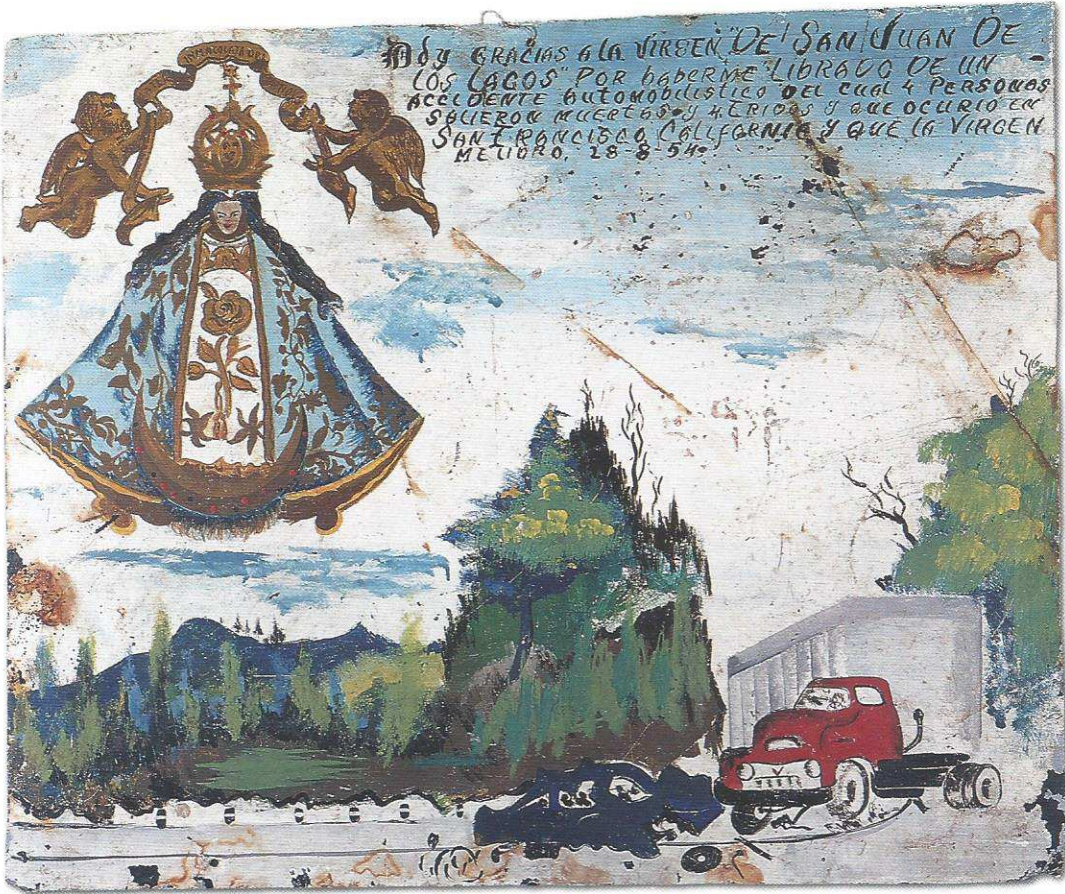 DOY GRACIAS A LA VIRGEN "DE SAN JUAN DE
LOS LAGOS" POR HABERME LIBRADO DE UN
ACCIDENTE AUTOMOBILISTICO DEL CUAL 4 PERSONAS
SALIERON MUERTAS Y 4 ERIDAS Y QUE OCURIO EN
SAN FRANCISCO, CALIFORNIA Y QUE LA VIRGEN
ME LIBRO. 28-8-54.